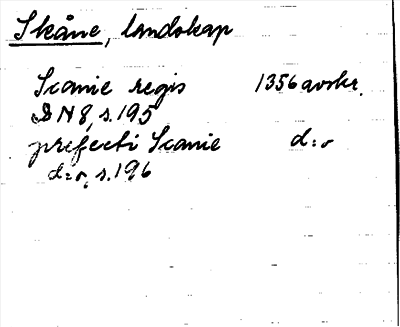 Skåne, landskap
Scanie regis 1356 avskr.
DN 8, s. 195
prefecti Scanie d:o
d:o, s. 196